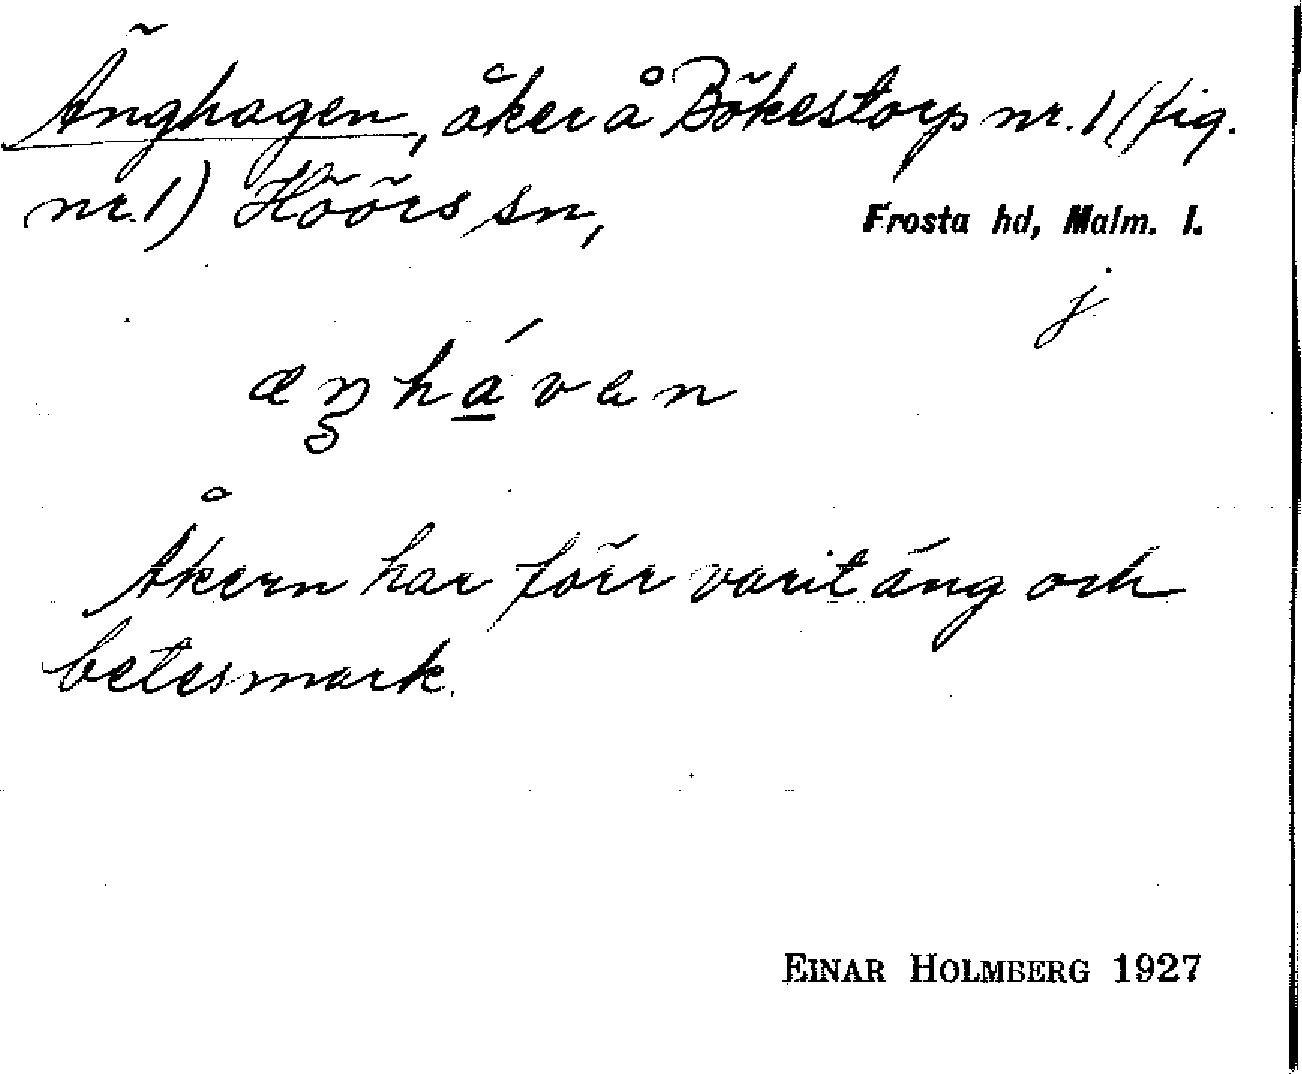 Änghagen, åker å Bökestorp nr. 1 (fig.
nr. 1) Höörs sn, Frosta hd, Malm. l.
j
æŋháven
Åkern har förr varit äng och
betesmark.
EINAR HOLMBERG 1927